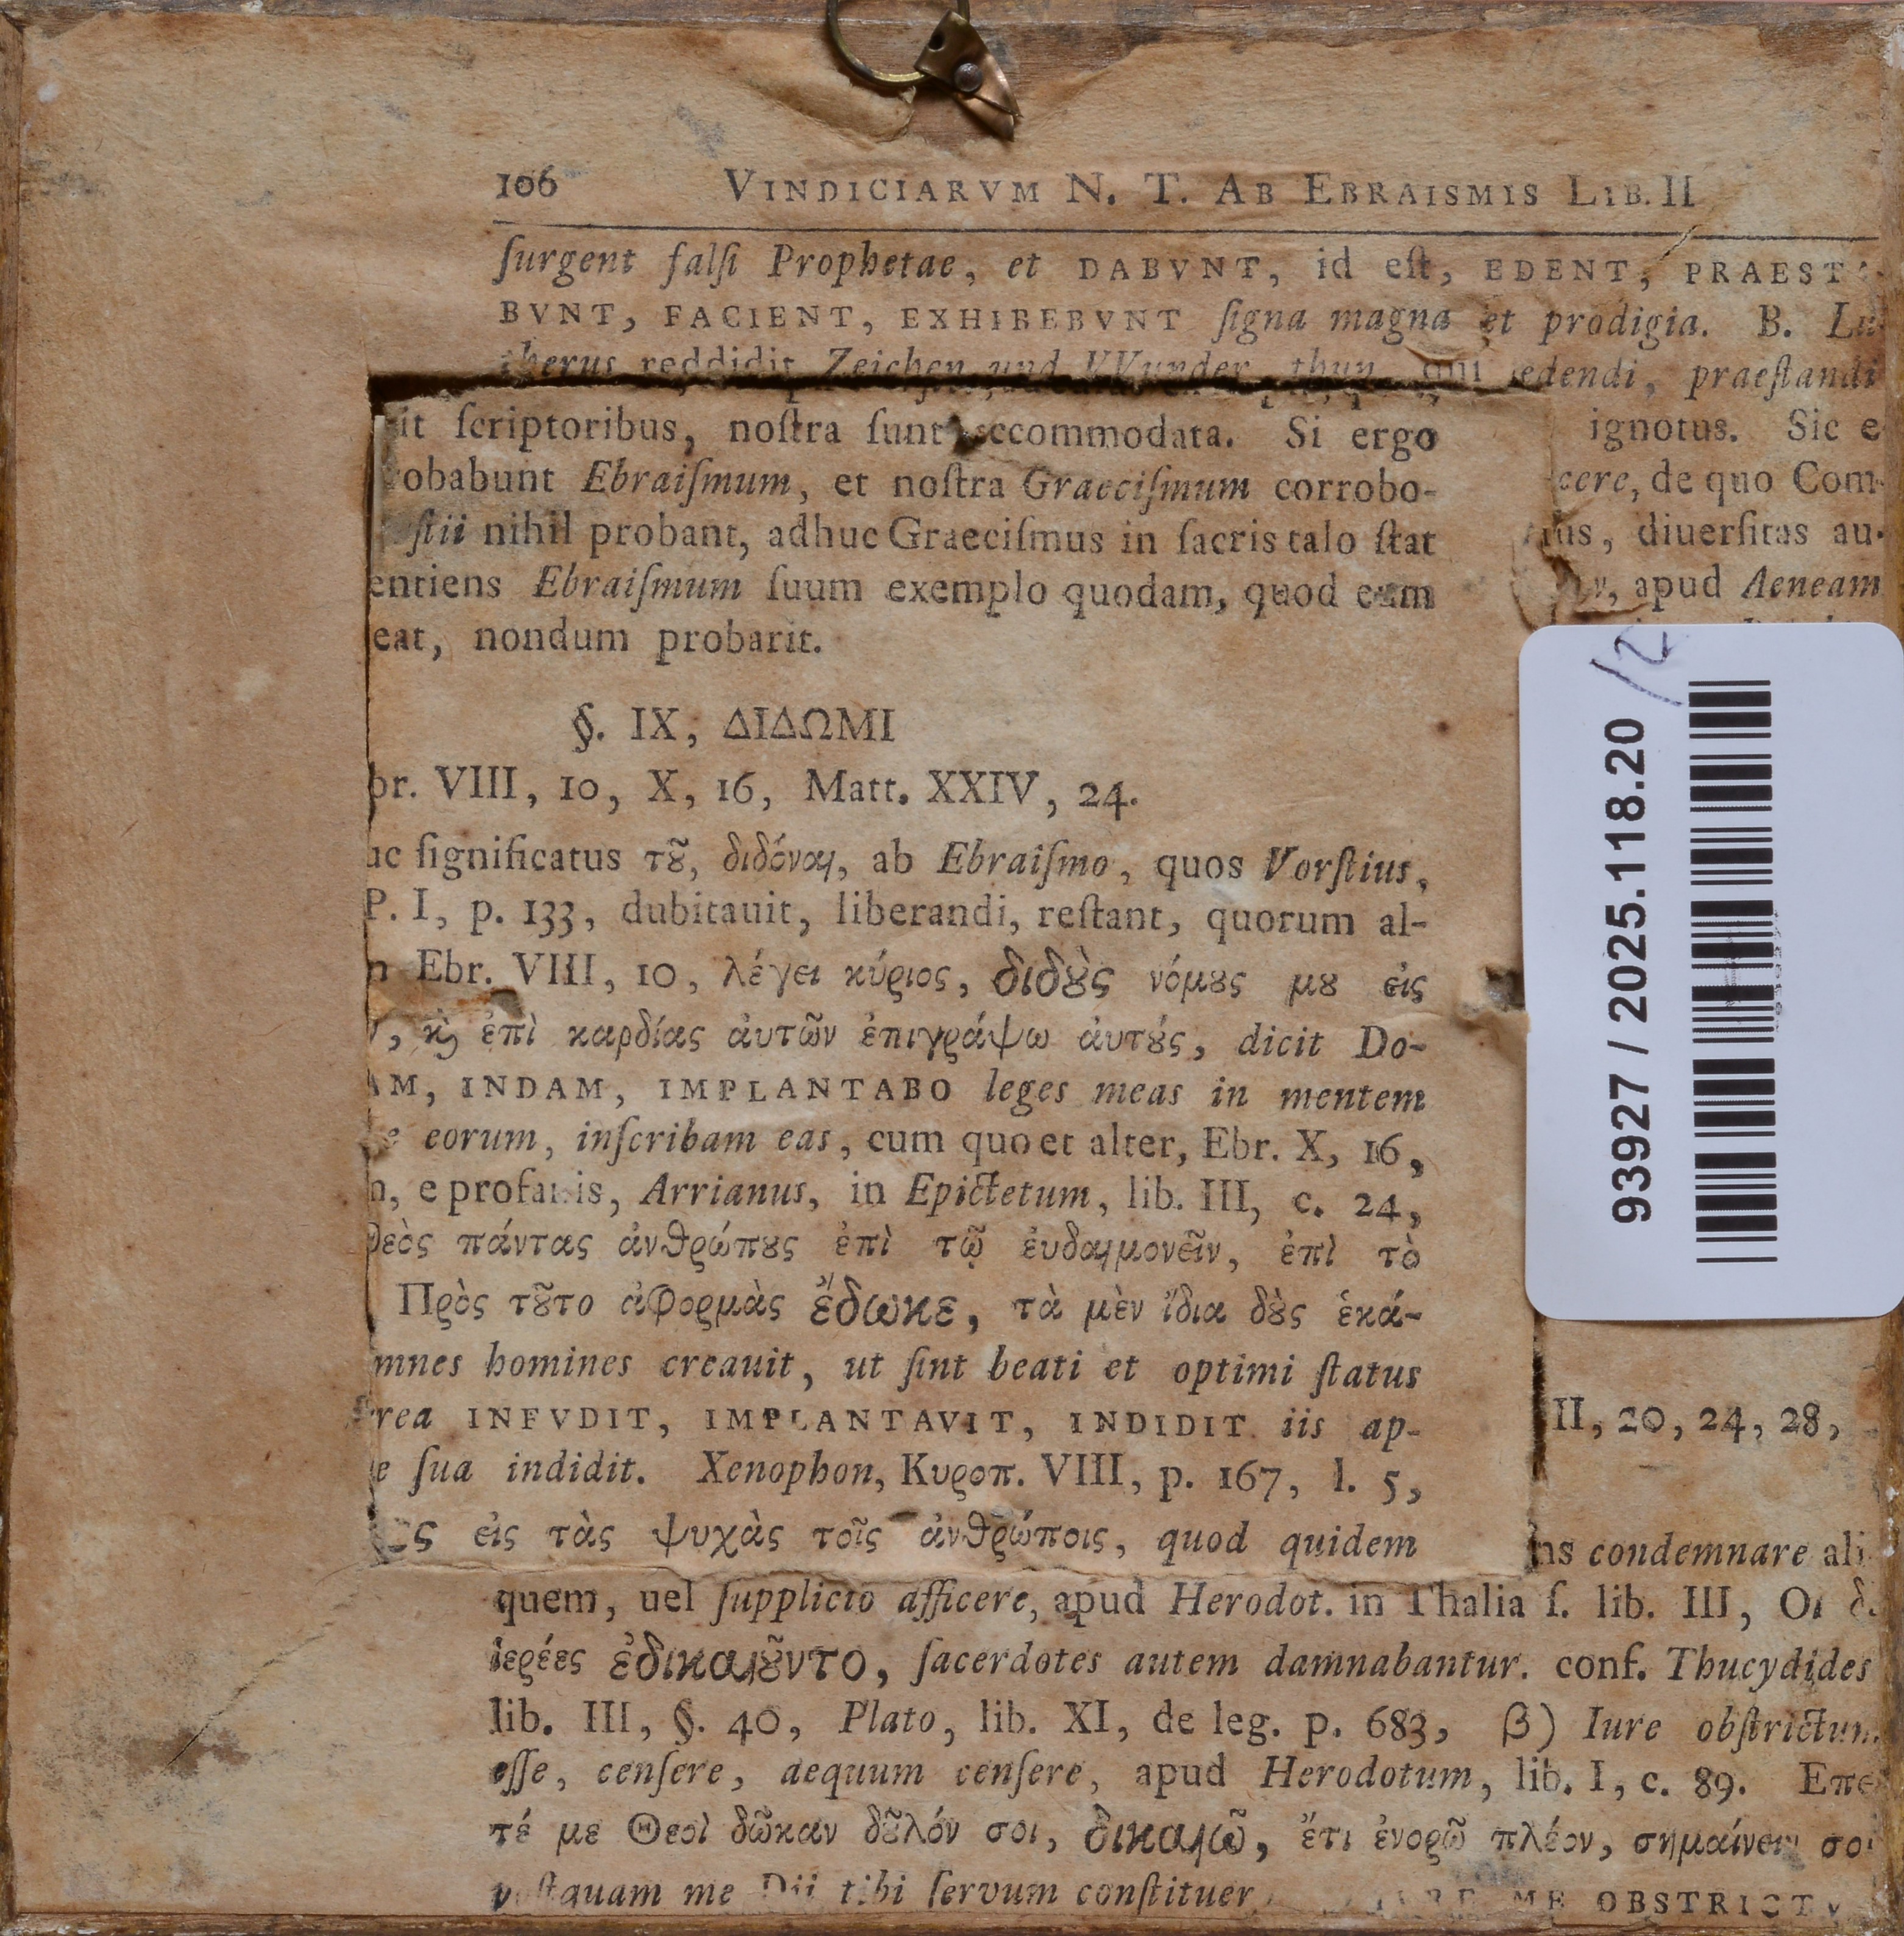 106 VINDICIARVM N. T. AB EBRAISMIS LIB. II
ſurgent falſi Prophetae, et DABVNT, id eſt, EDENT, PRAESTA-
BVNT, FACIENT, EXHIBEBVNT ſigna magna et prodigia. B. Lu-
therus reddidit Zeichen und VVunder thun, qui edendi, praeſtandi
it ſcriptoribus, noſtra ſunt accommodata. Si ergo
robabunt Ebraiſmum, et noſtra Graeciſmum corrobo-
ſtii nihil probant, adhuc Graeciſmus in ſacris talo ſtat
entiens Ebraiſmum ſuum exemplo quodam, quod eum
eat, nondum probarit.
§. IX, ΔΙΔΩΜΙ
br. VIII, 10, X, 16, Matt. XXIV, 24.
uc ſignificatus τȣ͂, διδόναι, ab Ebraiſmo, quos Vorſtius,
P. I, p. 133, dubitauit, liberandi, reſtant, quorum al-
n Ebr. VIII, 10, λέγει κύριος, διδȣ̀ς νόμȣς μȣ εἰς
, κỳ ἐπὶ καρδίας ἀυτῶν ἐπιγράψω ἀυτȣ́ς, dicit Do-
AM, INDAM, IMPLANTABO leges meas in mentem
e eorum, inſcribam eas, cum quo et alter, Ebr. X, 16,
n, e profanis, Arrianus, in Epictetum, lib. III, c. 24,
θεὸς πάντας ἀνθρώπȣς ἐπὶ τῷ ἐυδαιμονεῖν, ἐπὶ τὸ
Πρὸς τȣ͂το ἀφορμὰς ἔδωκε, τὰ μὲν ἴδια δȣ̀ς ἑκά-
mnes homines creauit, ut ſint beati et optimi ſtatus
rea INFVDIT, IMPLANTAVIT, INDIDIT iis ap-
e ſua indidit. Xenophon, Κυροπ. VIII, p. 167, l. 5,
ς εἰς τὰς ψυχὰς τοῖς ἀνθρώποις, quod quidem
ignotus. Sic e
cere, de quo Com-
ius, diuerſitas au-
apud Aeneam
93927 / 2025.118.20
/2
II, 20, 24, 28,
ns condemnare ali
quem, uel ſupplicio afficere, apud Herodot. in Thalia ſ. lib. III, Οι δὲ
ἱερέες ἐδικαιȣ͂ντο, ſacerdotes autem damnabantur. conf. Thucydides
lib. III, §. 40, Plato, lib. XI, de leg. p. 683, β) Iure obſtrictum
eſſe, cenſere, aequum cenſere, apud Herodotum, lib. I, c. 89. Επεί
τέ με Θεοὶ δῶκαν δȣ͂λόν σοι, δικαιῶ, ἔτι ἐνορῶ πλέον, σημαίνειν σοι
poſtquam me Dii tibi ſervum conſtituer IVRE ME OBSTRICTV